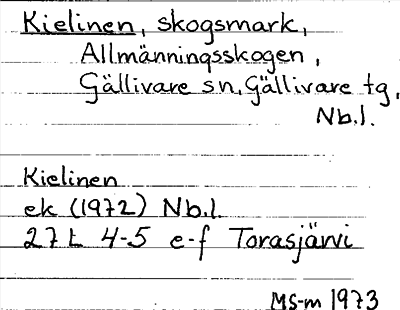 Kielinen, skogsmark,
Allmänningsskogen,
Gällivare sn, Gällivare tg,
Nb.l.
Kielinen
ek (1972) Nb.l.
27 L 4-5 e-f Torasjärvi
MS-m 1973